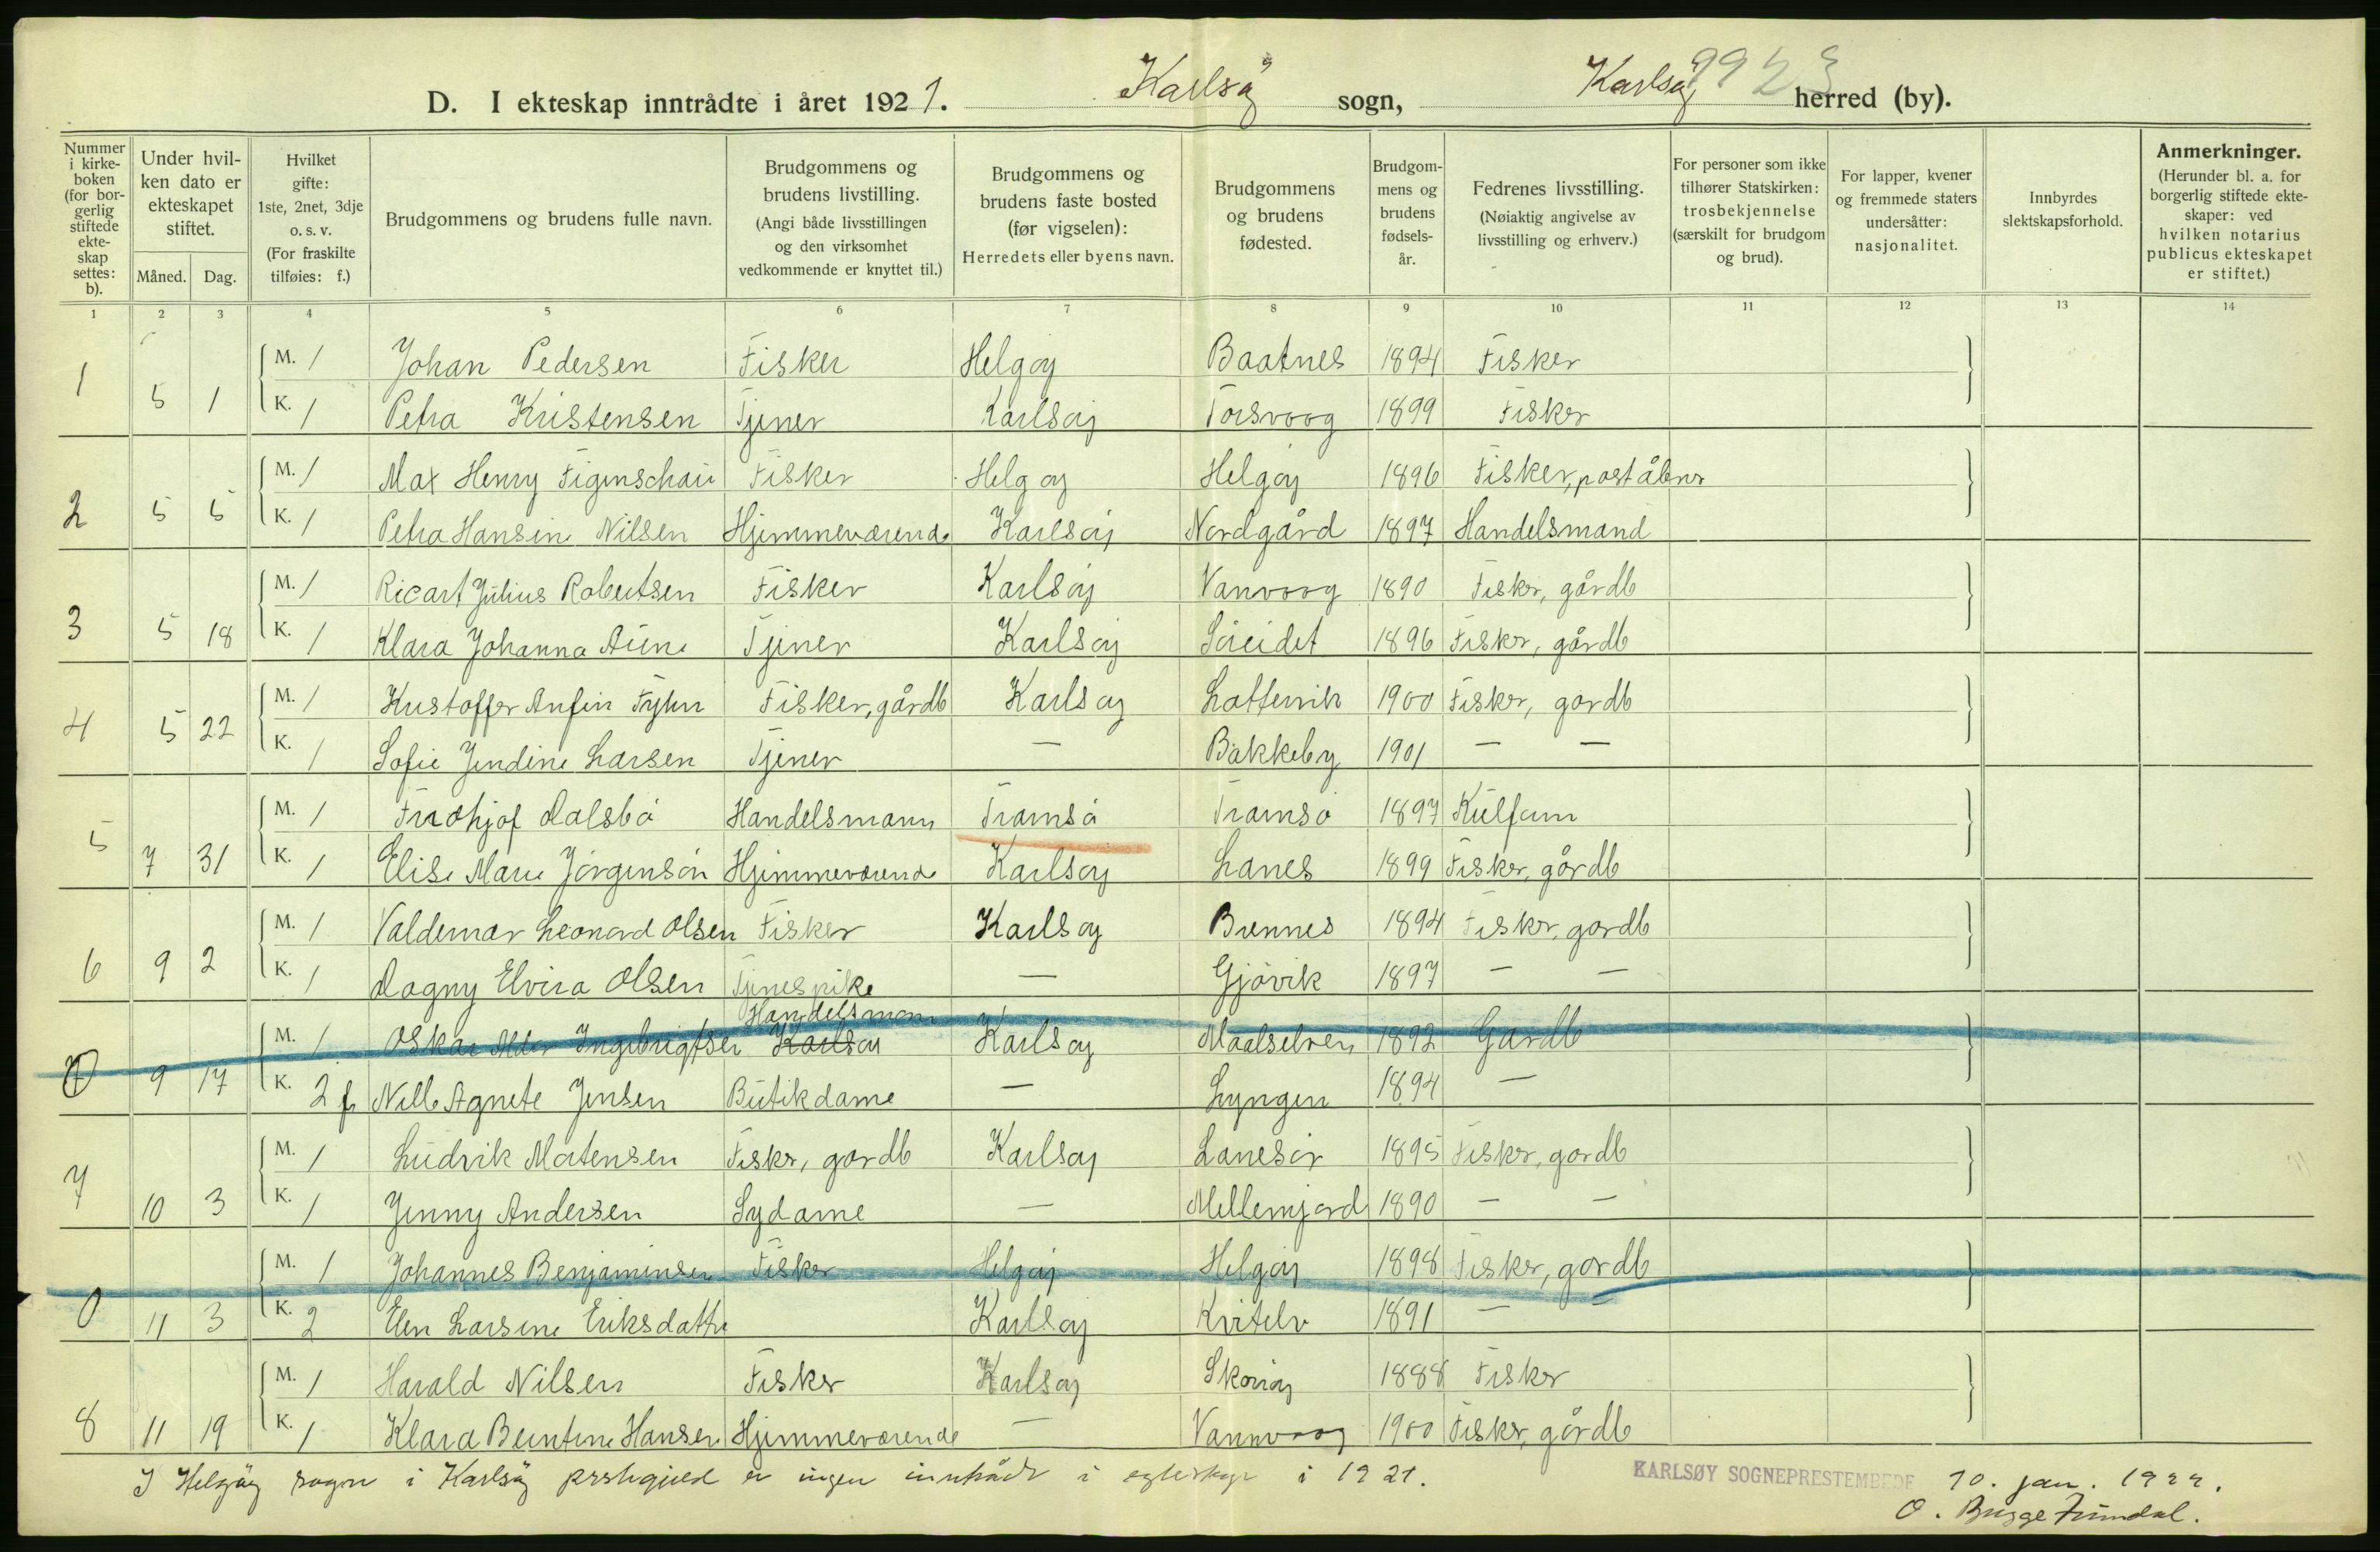 D. I ekteskap inntrådte i året 1921. Karlsøy sogn, Karlsøy herred (by).
9923
Nummer i kirkeboken (for borgerlig stiftede ekteskap settes: b).
Under hvilken dato er ekteskapet stiftet.
Måned. Dag.
Hvilket gifte: 1ste, 2net, 3dje o. s. v. (For fraskilte tilføies: f.)
Brudgommens og brudens fulle navn.
Brudgommens og brudens livstilling. (Angi både livsstillingen og den virksomhet vedkommende er knyttet til.)
Brudgommens og brudens faste bosted (før vigselen): Herredets eller byens navn.
Brudgommens og brudens fødested.
Brudgommens og brudens fødselsår.
Fedrenes livsstilling. (Nøiaktig angivelse av livsstilling og erhverv.)
For personer som ikke tilhører Statskirken: trosbekjennelse (særskilt for brudgom og brud).
For lapper, kvener og fremmede staters undersåtter: nasjonalitet.
Innbyrdes slektskapsforhold.
Anmerkninger. (Herunder bl. a. for borgerlig stiftede ekteskaper: ved hvilken notarius publicus ekteskapet er stiftet.)
1 2 3 4 5 6 7 8 9 10 11 12 13 14
M. 1 Johan Pedersen Fisker Helgøy Baatnes 1894 Fisker
1 5 1 K. 1 Petra Kristensen Tjener Karlsøy Torsvoog 1899 Fisker
M. 1 Max Henry Figenschau Fisker Helgøy Helgøy 1896 Fisker, poståbner
2 5 5 K. 1 Petra Hansine Nilsen Hjemmeværende Karlsøy Nordgård 1897 Handelsmand
M. 1 Ricart Julius Robertsen Fisker Karlsøy Vanvoog 1890 Fisker, gårdb
3 5 18 K. 1 Klara Johanna Aune Tjener Karlsøy Søreidet 1896 Fisker, gårdb
M. 1 Kristoffer Anfin Fyhn Fisker, gårdb Karlsøy 1900 Fisker, gardb
4 5 22 K. 1 Sofie Jendine Larsen Tjener — Bakkeby 1901 — —
M. 1 Fridthjof Dalsbø Handelsmann Tromsø Tromsø 1897
5 7 31 K. 1 Elise Marie Jørgensen Hjemmeværende Karlsøy Lanes 1899 Fisker, gårdb
M. 1 Valdemar Leonard Olsen Fisker Karlsøy Brennes 1894 Fisker, gardb
6 9 2 K. 1 Dagny Elvira Olsen Tjenespike — Gjøvik 1897 — —
Handelsmann
M. 1 Oskar Ingebrigtsen Karlsøy Karlsøy Maalselven 1892 Gardb
9 17 K. 2 f Nille Agnete Jensen Butikdame — Lyngen 1894 —
M. 1 Ludvik Mortensen Fisker, gardb Karlsøy Lanesør 1895 Fisker, gardb
7 10 3 K. 1 Jenny Andersen Sydame — Mellemjord 1890 — —
M. 1 Johannes Benjaminsen Fisker Helgøy Helgøy 1898 Fisker, gardb
0 11 3 K. 2 Elen Larsine Eriksdatter Karlsøy Kvitelv 1891 — —
M. 1 Harald Nilsen Fisker Karlsøy 1888 Fisker
8 11 19 K. 1 Klara Berntine Hansen Hjemmeværende — Vannvoog 1900 Fisker, gårdb
I Helgøy sogn i Karlsøy prestegjeld er ingen inntrådt i egteskap i 1921.
KARLSØY SOGNEPRESTEMBEDE 10. jan. 1922.
O. Bugge